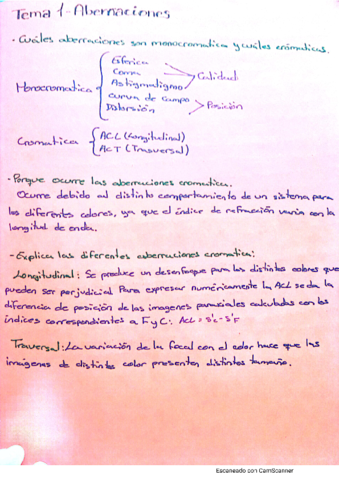 Tema 1-Aberraciones
- Cuáles aberraciones son monocromatica y cuáles crómaticas.
Monocromatica
Esférica
Coma
Astigmatigmo
Curva de Campo
Distorsión
Calidad
Posición
Cromatica
ACL (Longitudinal)
ACT (Trasversal)
- Porque ocurre las aberraciones cromatica.
Ocurre debido al distinto comportamiento de un sistema para
los diferentes colores, ya que el índice de refracción varia con la
longitud de onda.
- Explica las diferentes aberraciones cromatica:
Longitudinal: Se produce un desenfoque para los distintos colores que
pueden ser perjudicial. Para expresar numéricamente la ACL se da la
diferencia de posición de las imagenes paraxiales calculadas con los
índices correspondientes a F y C: ACL = s'c - s'F
Traversal: La variación de la focal con el color hace que las
imágenes de distintos color presenten distintos tamaño.
Escaneado con CamScanner